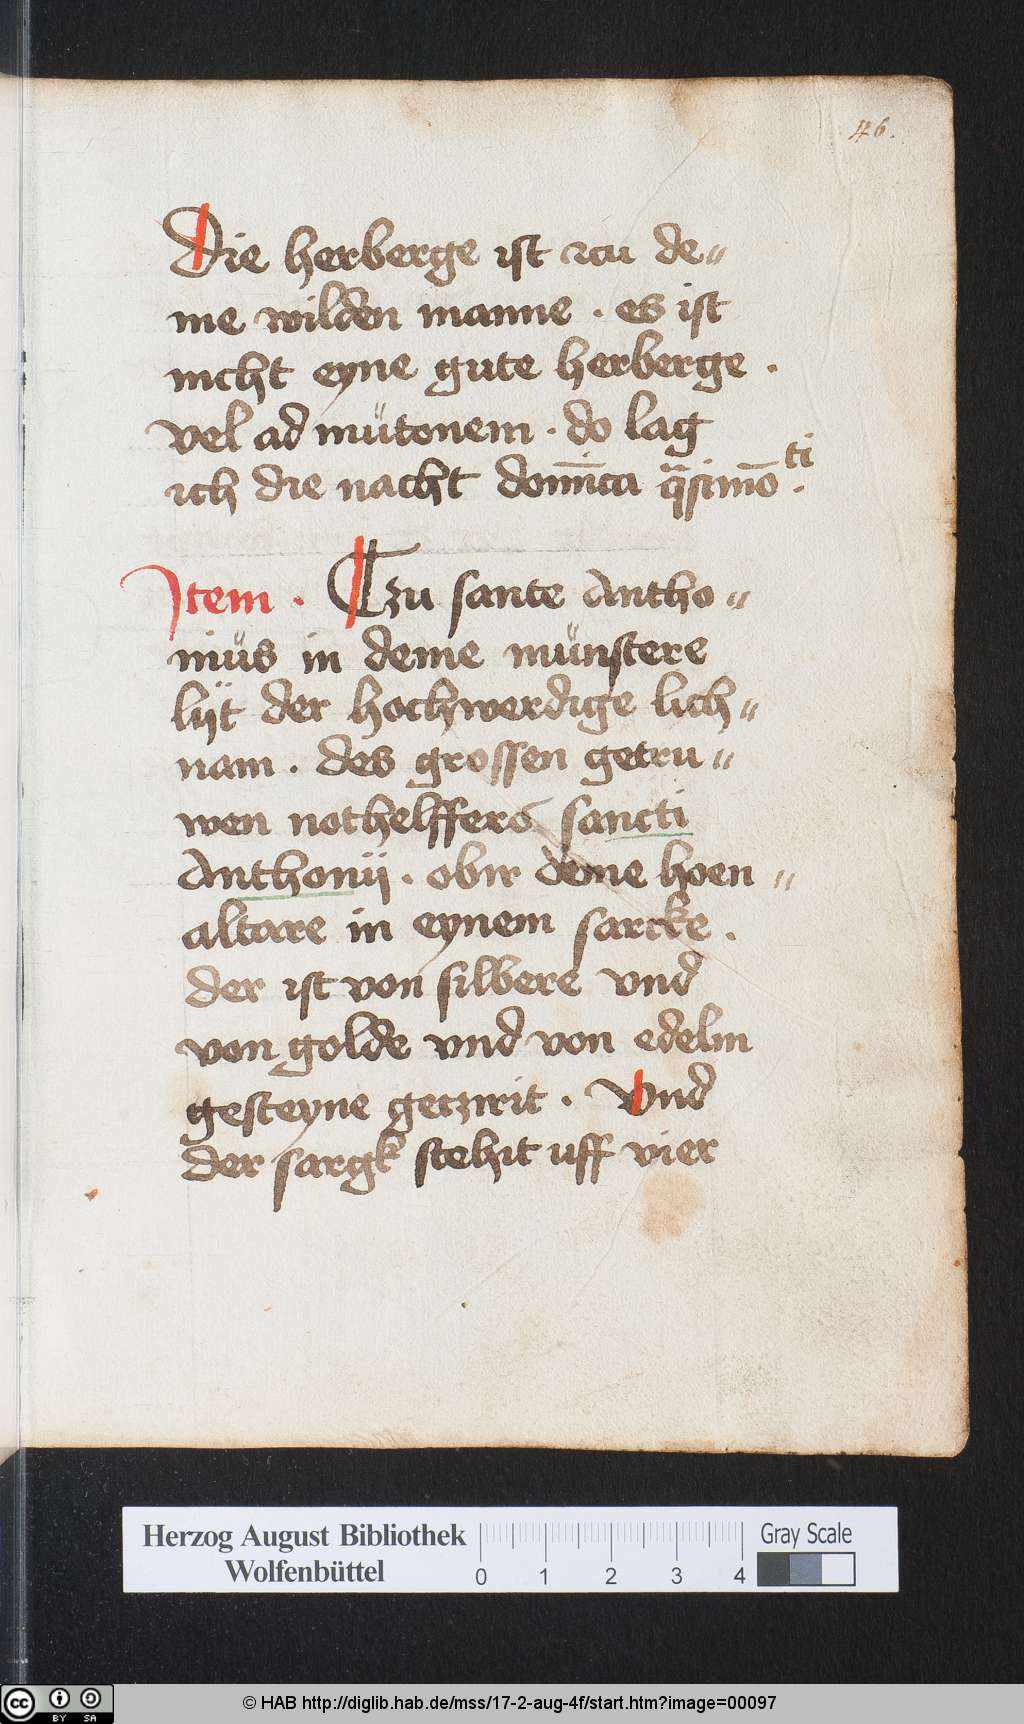 46.
Die herberge ist zcu de„
me wilden manne . es ist
nicht eyne gute herberge .
vel ad mütonem . do lag
ich die nacht domīca q̄simōti .
Item . Tzu sante Antho„
niüs in deme münstere
lijt der hochwerdige lich„
nam . des grossen getru„
wen nothelffers sancti
Anthonij . obir deme hoen„
altare in eynem sarcke .
der ist von silbere vnd
von golde vnd von edelm
gesteyne getzirit . Vnd
der sargk stehit uff vier
Herzog August Bibliothek
Wolfenbüttel
0 1 2 3 4
Gray Scale
cc BY SA
© HAB http://diglib.hab.de/mss/17-2-aug-4f/start.htm?image=00097